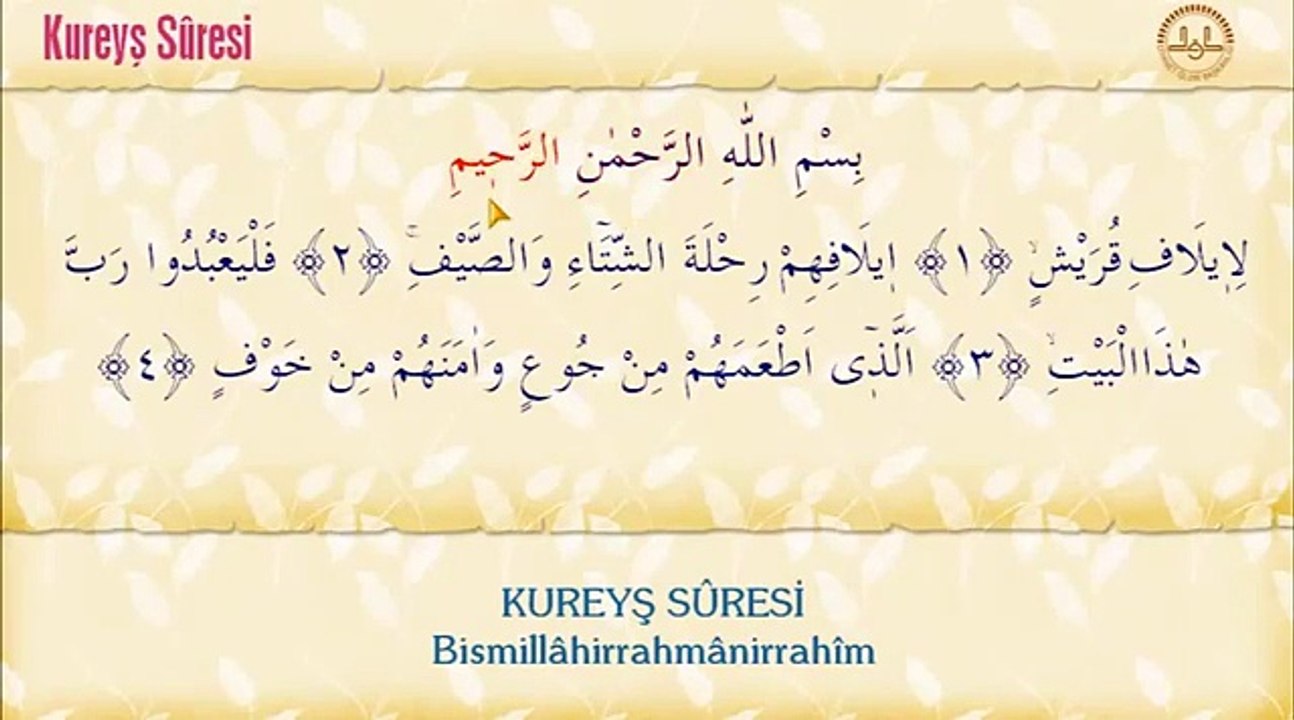 Kureyş Sûresi
بِسْمِ اللّٰهِ الرَّحْمٰنِ الرَّحٖيمِ
لِاٖيلَافِ قُرَيْشٍۙ ﴿١﴾ اٖيلَافِهِمْ رِحْلَةَ الشِّتَٓاءِ وَالصَّيْفِۚ ﴿٢﴾ فَلْيَعْبُدُوا رَبَّ
هٰذَا الْبَيْتِۙ ﴿٣﴾ اَلَّذٖٓى اَطْعَمَهُمْ مِنْ جُوعٍ وَاٰمَنَهُمْ مِنْ خَوْفٍ ﴿٤﴾
KUREYŞ SÛRESİ
Bismillâhirrahmânirrahîm